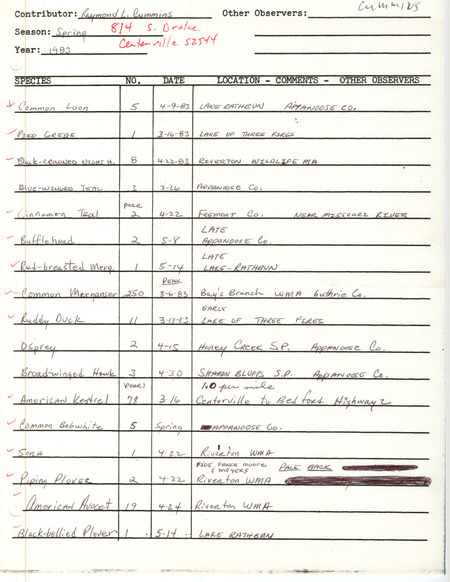 Cummins
Contributor: Raymond L. Cummins Other Observers:
Season: Spring 814 S. Drake
Centerville 52544
Year: 1983
SPECIES NO. DATE LOCATION - COMMENTS - OTHER OBSERVERS
Common Loon 5 4-9-83 LAKE RATHBUN APPANOOSE CO.
PIED GREBE 1 3-16-83 LAKE OF THREE FIRES
Black-crowned Night H. 8 4-22-83 RIVERTON WILDLIFE MA
Blue-winged Teal 3 3-26 APPANOOSE Co.
Cinnamon Teal pair 2 4-22 FREMONT Co. NEAR MISSOURI RIVER
LATE
Bufflehead 2 5-8 APPANOOSE Co.
LATE
Red-breasted Merg. 1 5-14 LAKE-RATHBUN
PEAK
Common Merganser 250 3-6-83 Bay's Branch WMA Guthrie Co.
EARLY
Ruddy Duck 11 3-17-83 LAKE OF THREE FIRES
Osprey 2 4-15 HONEY CREEK S.P. APPANOOSE Co.
Broad-winged Hawk 3 4-30 SHARON BLUFFS S.P. APPANOOSE Co.
(PEAK) 1.0 per mile
American Kestrel 78 3-16 Centerville to Bedford Highway 2
Common Bobwhite 5 Spring APPANOOSE Co.
Sora 1 4-22 Riverton WMA
MOORE & MEYERS PALE BACK
Piping Plover 2 4-22 Riverton WMA
American Avocet 19 4-24 Riverton WMA
Black-bellied Plover 1 5-14 LAKE RATHBUN